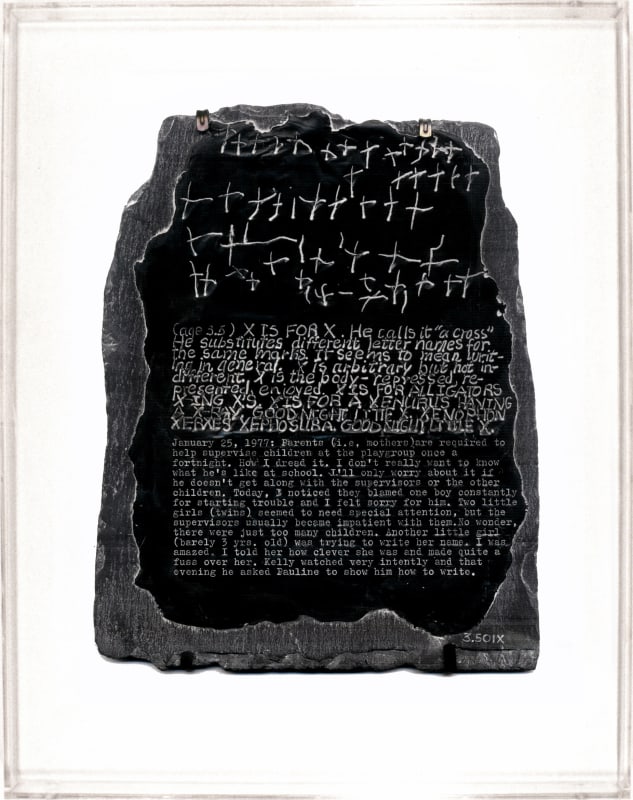 (age 3.5) X IS FOR X. He calls it "a cross"
He substitutes different letter names for
the same marks. It seems to mean writ-
ing in general. X is arbitrary but not in-
different, X is the body- repressed, re-
presented, enjoyed. X IS FOR ALLIGATORS
X'ING X'S, X IS FOR A XENURUS HAVING
A X-RAY, GOOD NIGHT LITTLE X. XENOPHON
XERXES XEPHOSURA. GOOD NIGHT LITTLE X.
January 25, 1977: Parents (i.e, mothers)are required to
help supervise children at the playgroup once a
fortnight. How I dread it. I don't really want to know
what he's like at school. I'll only worry about it if
he doesn't get along with the supervisors or the other
children. Today, I noticed they blamed one boy constantly
for starting trouble and I felt sorry for him. Two little
girls (twins) seemed to need special attention, but the
supervisors usually became impatient with them.No wonder,
there were just too many children. Another little girl
(barely 3 yrs. old) was trying to write her name. I was
amazed. I told her how clever she was and made quite a
fuss over her. Kelly watched very intently and that
evening he asked Pauline to show him how to write.
3.501X